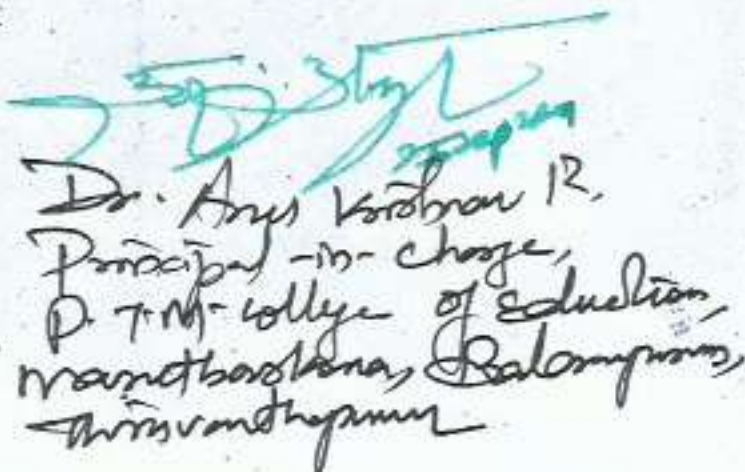 Dr. Arun Krishnan R,
Principal-in-charge,
P.T.M. College of Education,
Maruthoorkona, Balaramapuram,
Thiruvananthapuram